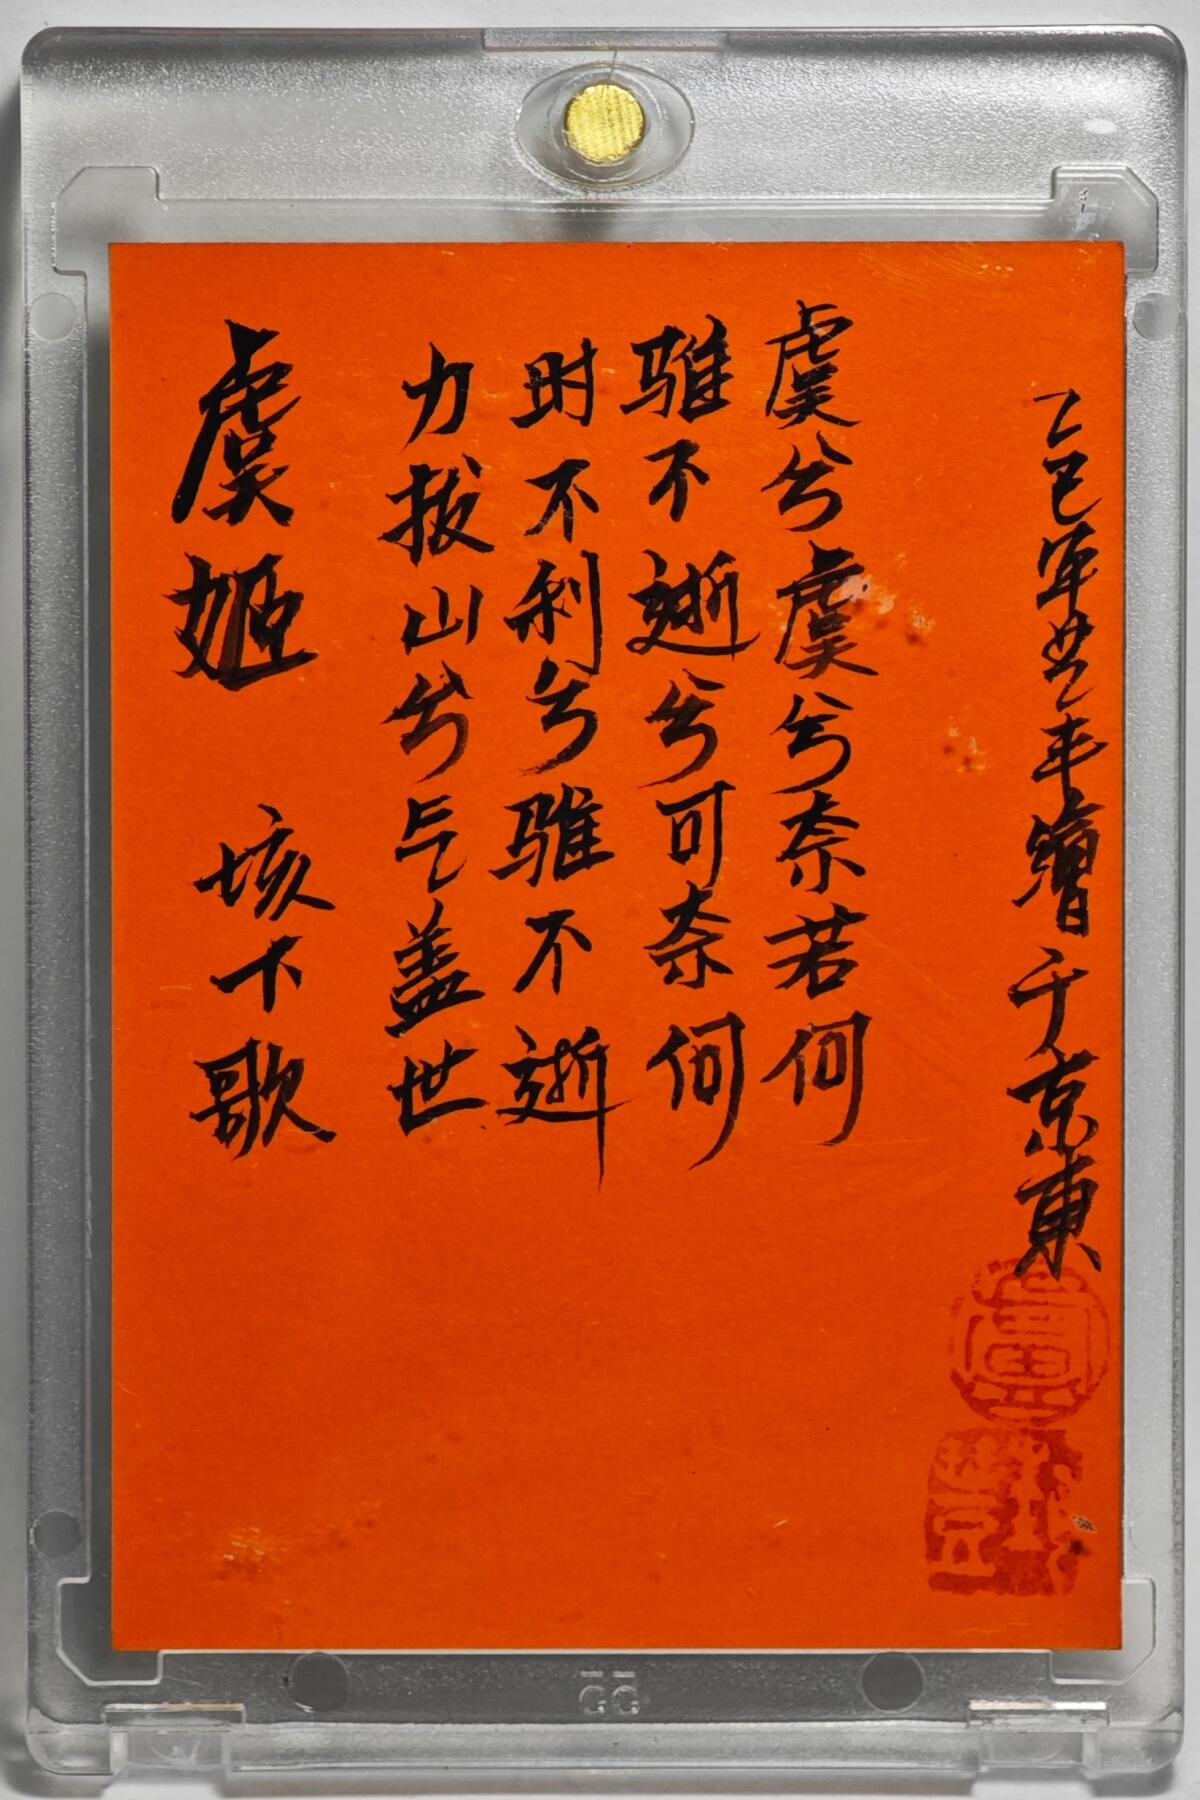 虞姬 垓下歌
力拔山兮气盖世
时不利兮骓不逝
骓不逝兮可奈何
虞兮虞兮奈若何
乙巳年丰繪于京東